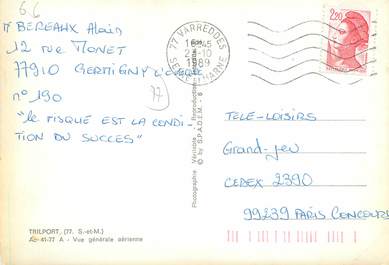 6.6
Mr BEREAUX Alain
12 rue MONET
77910 GERMIGNY L'EVEQUE
n° 190
77
"le RISQUE EST LA CONDI-
TION DU SUCCES"
TRILPORT, (77. S.-et-M.)
A - 41-77 A - Vue générale aérienne
Photographie Véritable - Reproduction
© by S.P.A.D.E.M. - 6
77 VARREDDES
16H45
10
1989
SEINE ET MARNE
2,20
TELE-LOISIRS
Grand-jeu
CEDEX 2390
99239 PARIS CONCOURS